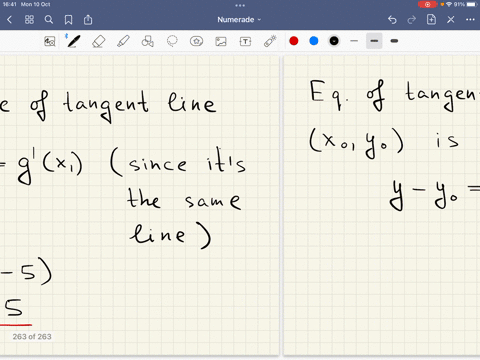 16:41 Mon 10 Oct
91%
Numerade
e of tangent line
= g'(x₁) (since it's
the same
line)
- 5)
5
263 of 263
Eq. of tangen
(x₀, y₀) is
y - y₀ =